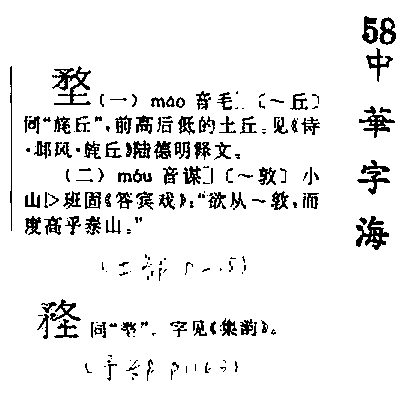 58
中華字海
堥 (一) máo 音毛 〔～丘〕
同“旄丘”,前高后低的土丘。见《诗
·邶风·旄丘》陆德明释文。
(二) móu 音谋 〔～敦〕小
山▷班固《答宾戏》:“欲从～敦,而
度高乎泰山。”
同“嵍”。字见《集韵》。